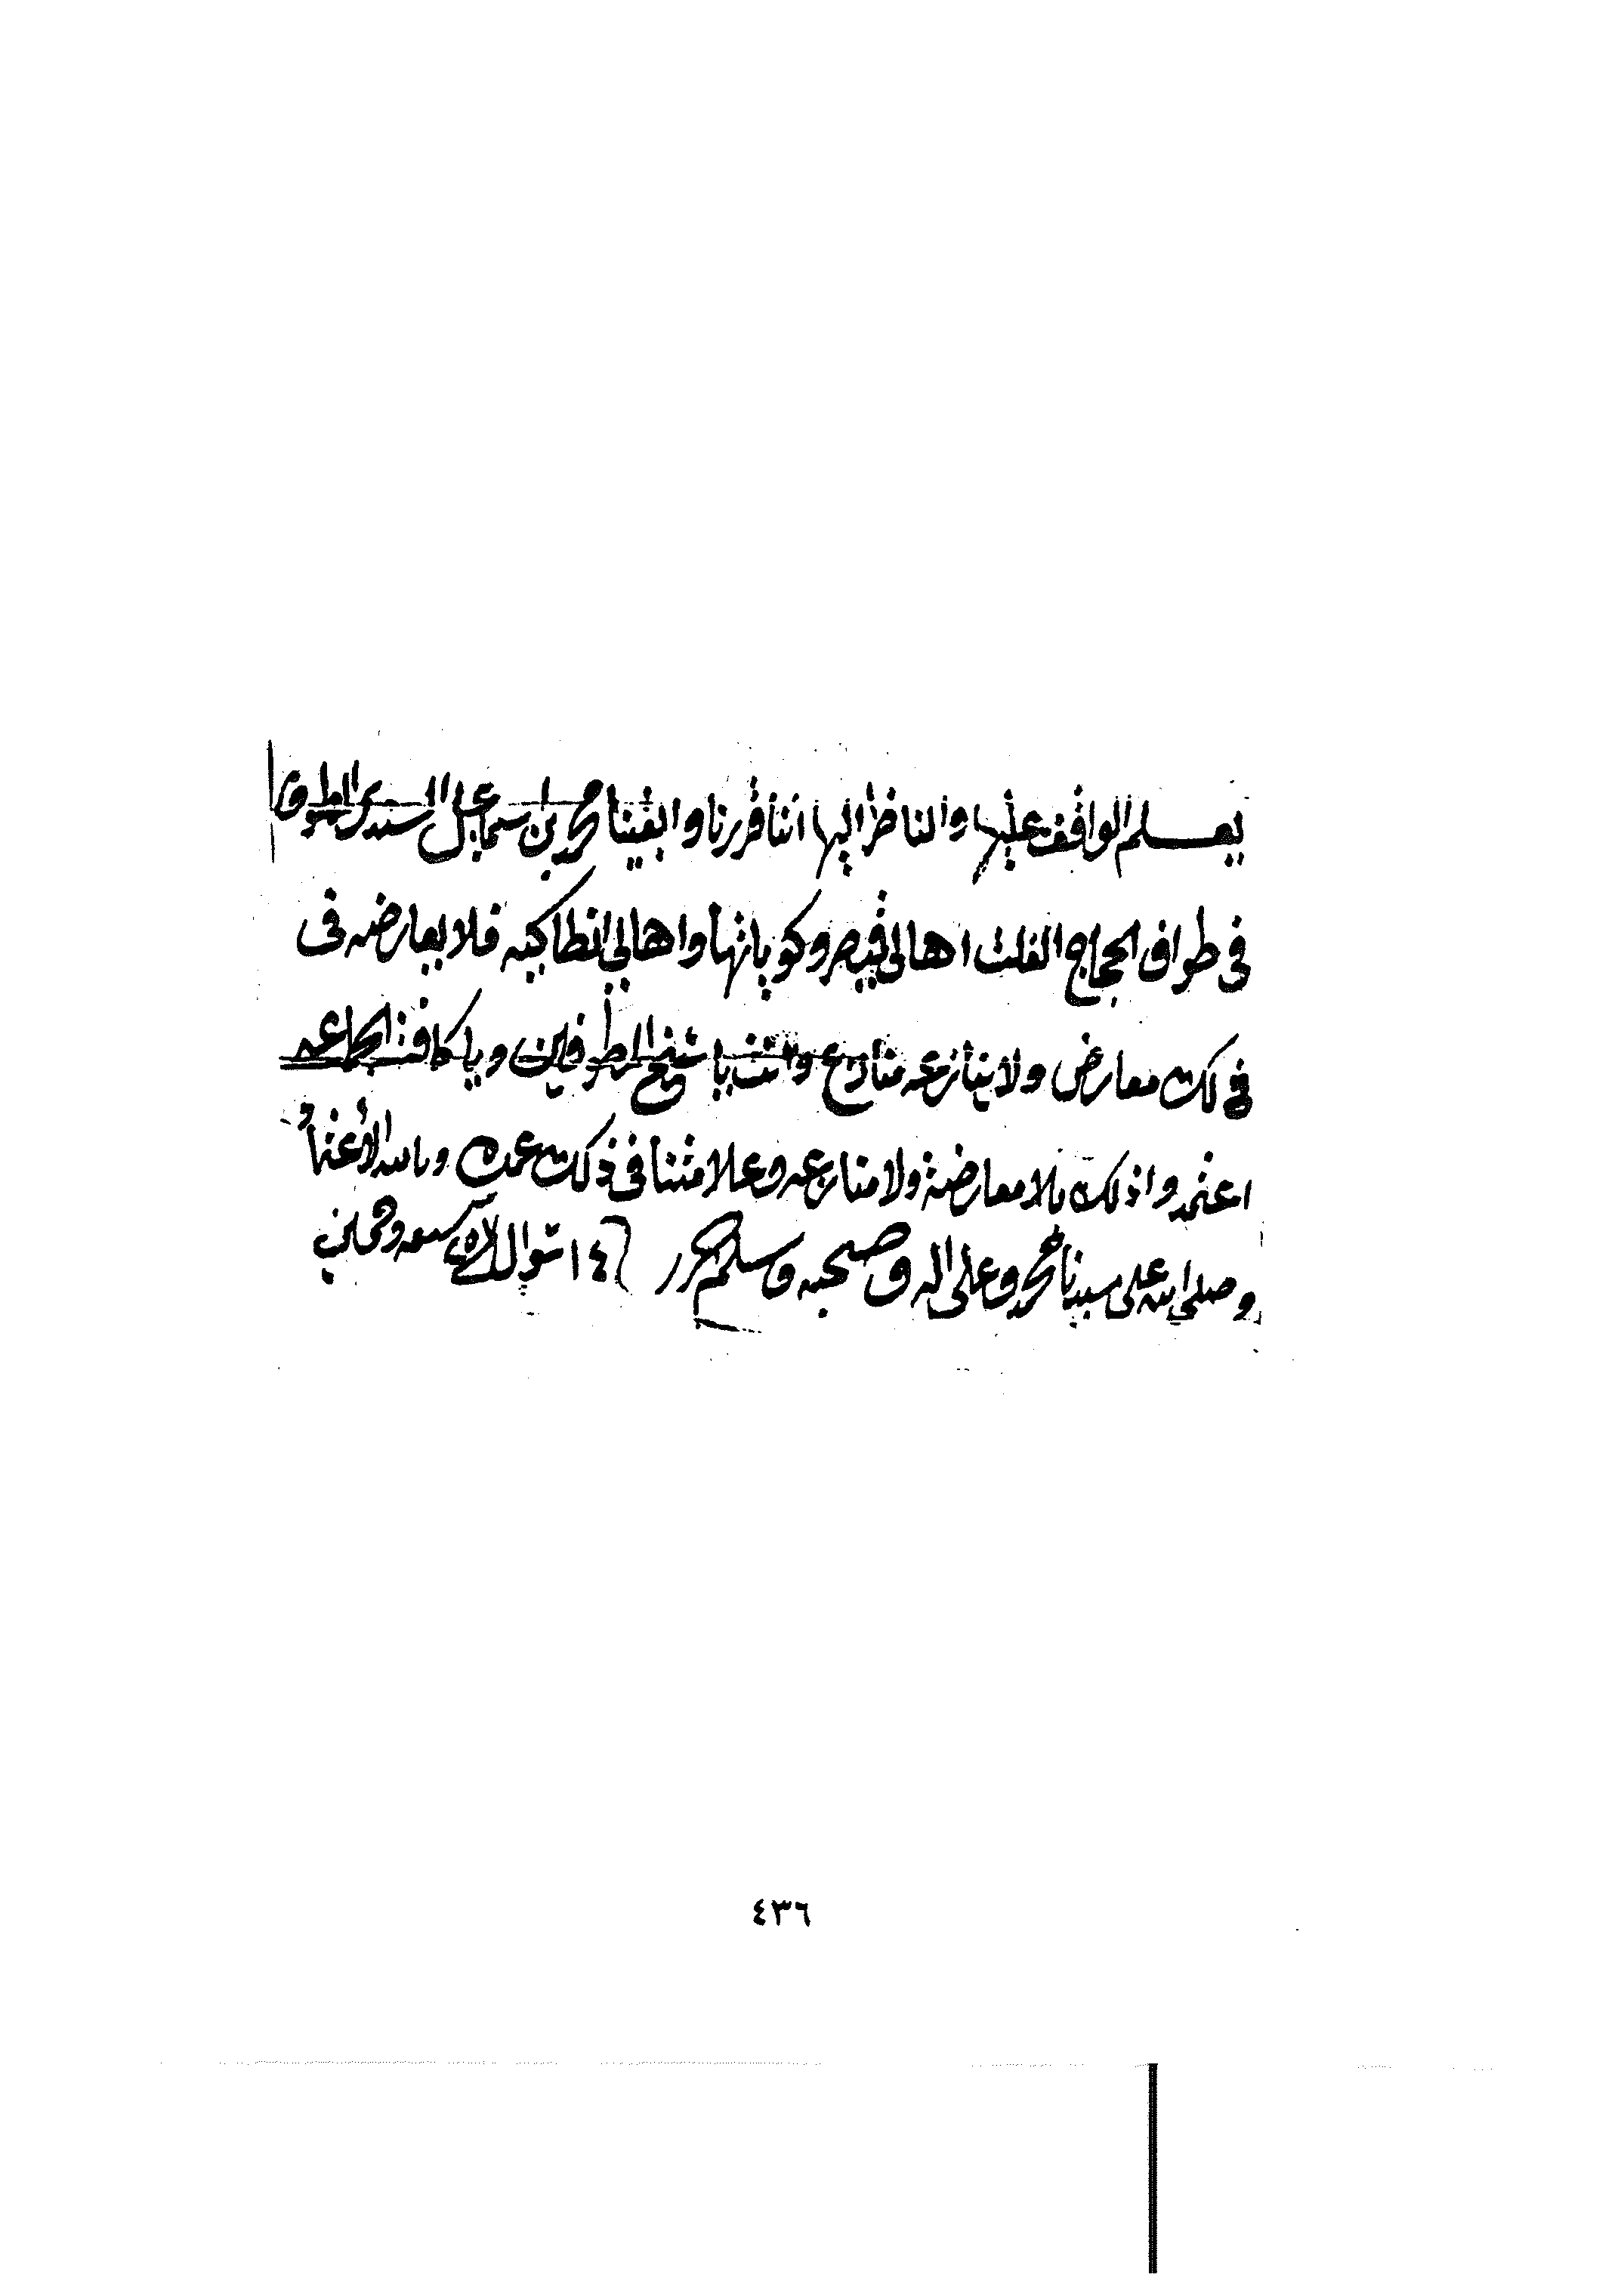 يعلم الواقف عليها والناظر اليها اننا قررنا وابقينا محمد بن اسماعيل السندي المطوف
في طوافة الحجاج الفلت اهالي قيصر وكوياتها واهالي انطاكيه فلا يعارضه في
ذلك معارض ولا ينازعه منازع وانت يا شيخ المطوفين ويا كافة الجماعه
اعتمدوا ذلك بلا معارضة ولا منازعه وعلامتنا في ذلك عمده وبالله الاعتماد
وصلى الله على سيدنا محمد وعلى اله وصحبه وسلم حرر ١٤ شوال
٤٣٦